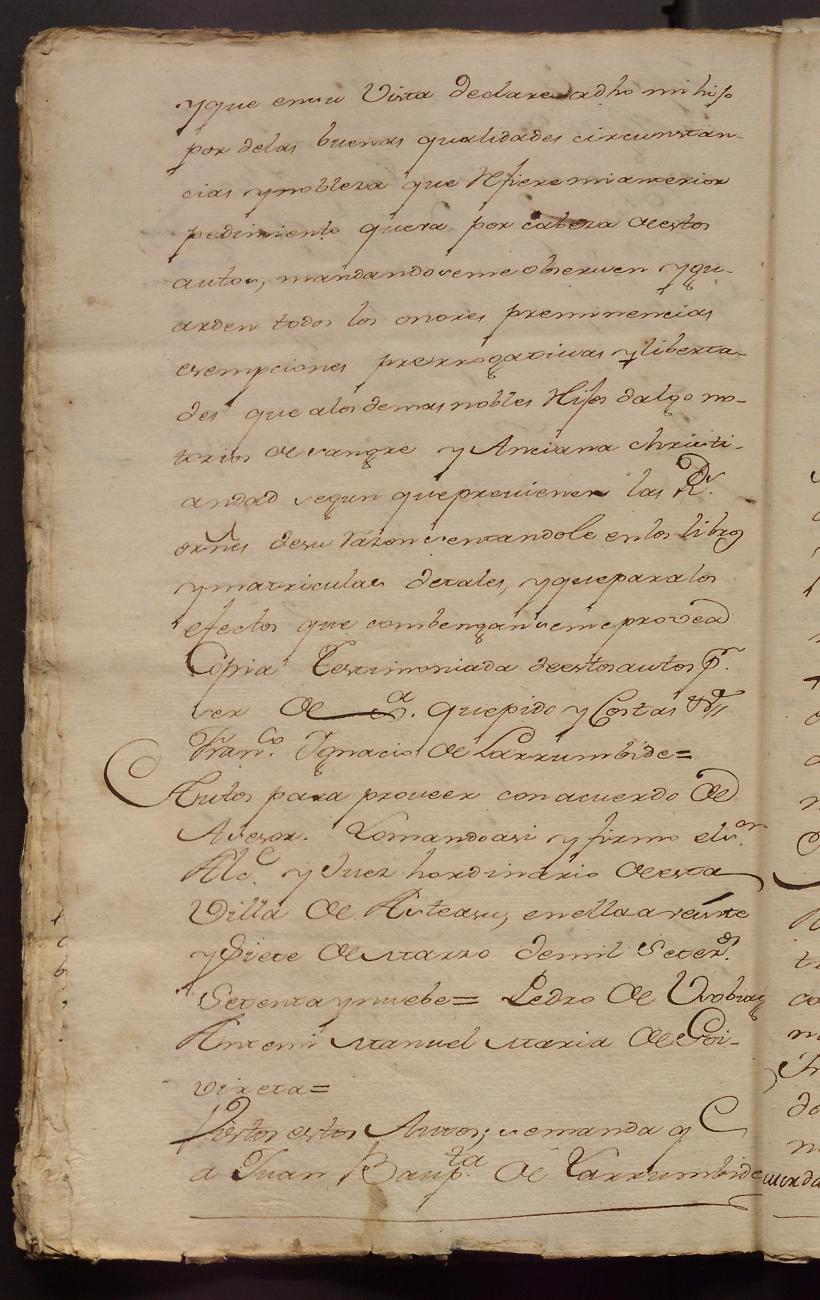 y que en su Vista declare a dho mi hijo
por de las buenas qualidades circunstan-
cias y nobleza que refiere mi anterior
pedimiento que va por cabeza de estos
autos, mandando se me observen y gu-
arden todos los onores preminencias
esempciones prerrogativas y liberta-
des que a los demas nobles Hijos dalgo no-
torios de sangre y Anciana christi-
andad segun que previenen las Rs.
ornes de su razon sentandole en los libros
y matriculas de tales, y que para los
efectos que combengan se me provea
Copia Testimoniada de estos autos p.
ser de que pido y Costas &ª
Franco. Ignacio de Larrumbide=
Autos para proveer con acuerdo de
Asesor. Lo mando asi y firmo el sor.
Alce. y Juez hordinario de esta
Villa de Asteasu, en ella a veinte
y Siete de Marzo de mil Setezs.
Setenta y nuebe= Pedro de
Ante mi Manuel Maria de Goi-
vireta=
Vistos estos Autos; se manda q
a Juan Baupta. de Larrumbide